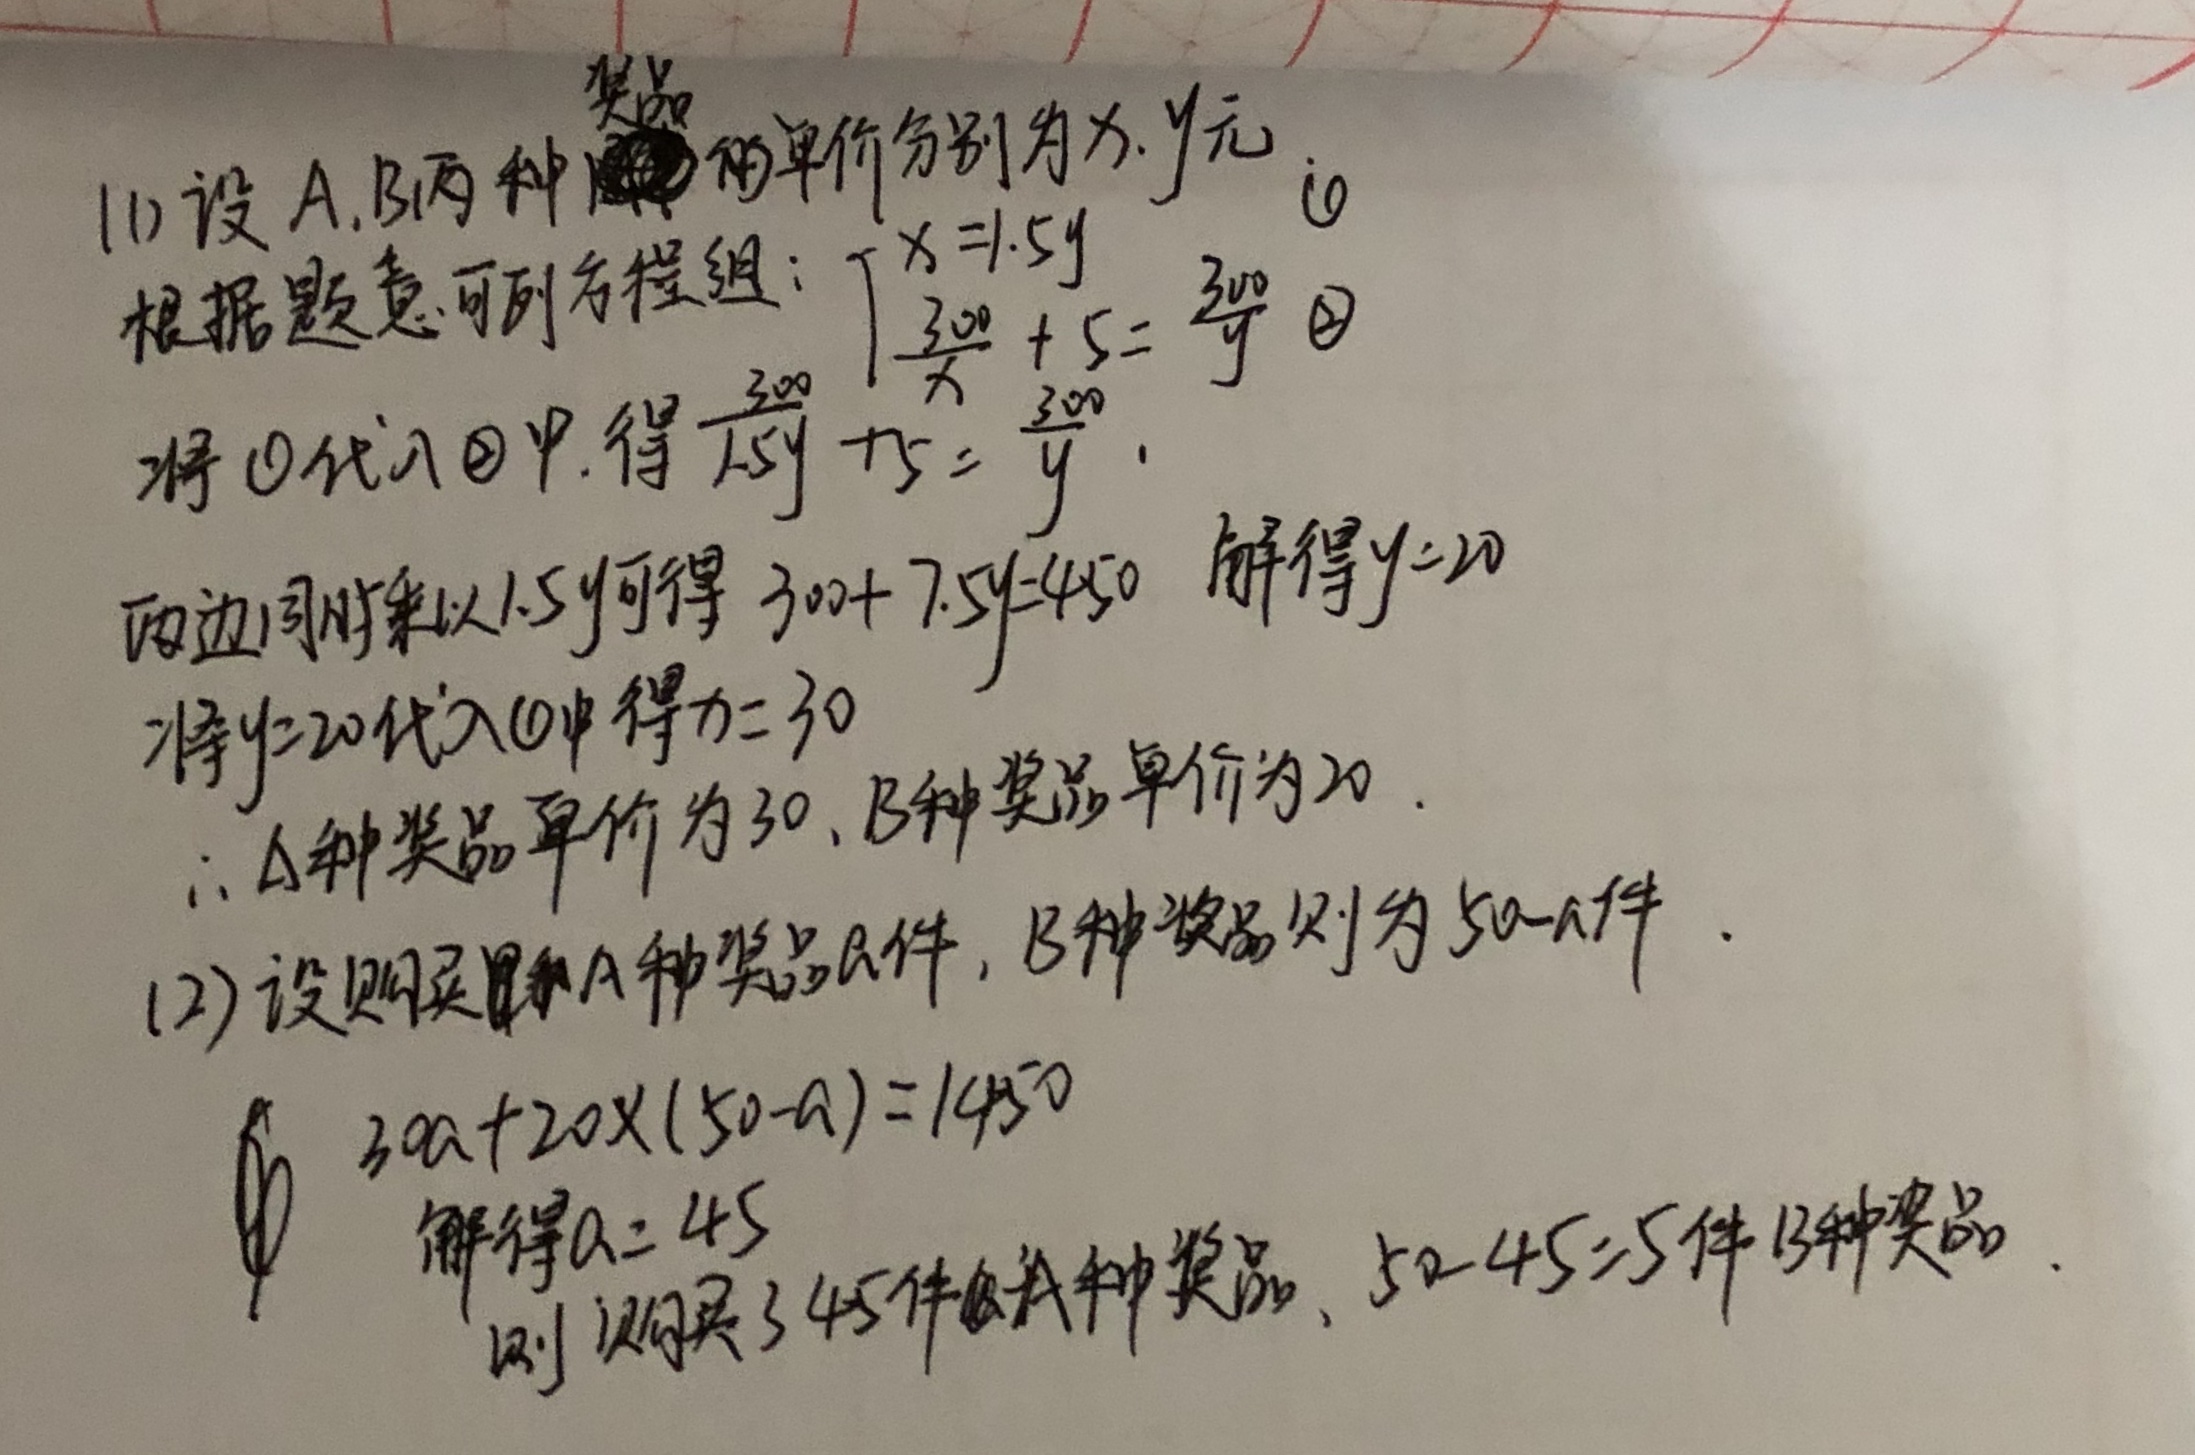 (1) 设A、B两种奖品的单价分别为x、y元.
根据题意可列方程组: { x=1.5y ①
300/x + 5 = 300/y ②
将①代入②中.得 300/1.5y +5= 300/y .
两边同时乘以1.5y可得 300+7.5y=450 解得y=20
将y=20代入①中得x=30
∴A种奖品单价为30、B种奖品单价为20.
(2)设购买A种奖品a件,B种奖品则为50-a件.
30a+20×(50-a)=1450
解得a=45
则购买了45件A种奖品、50-45=5件B种奖品.